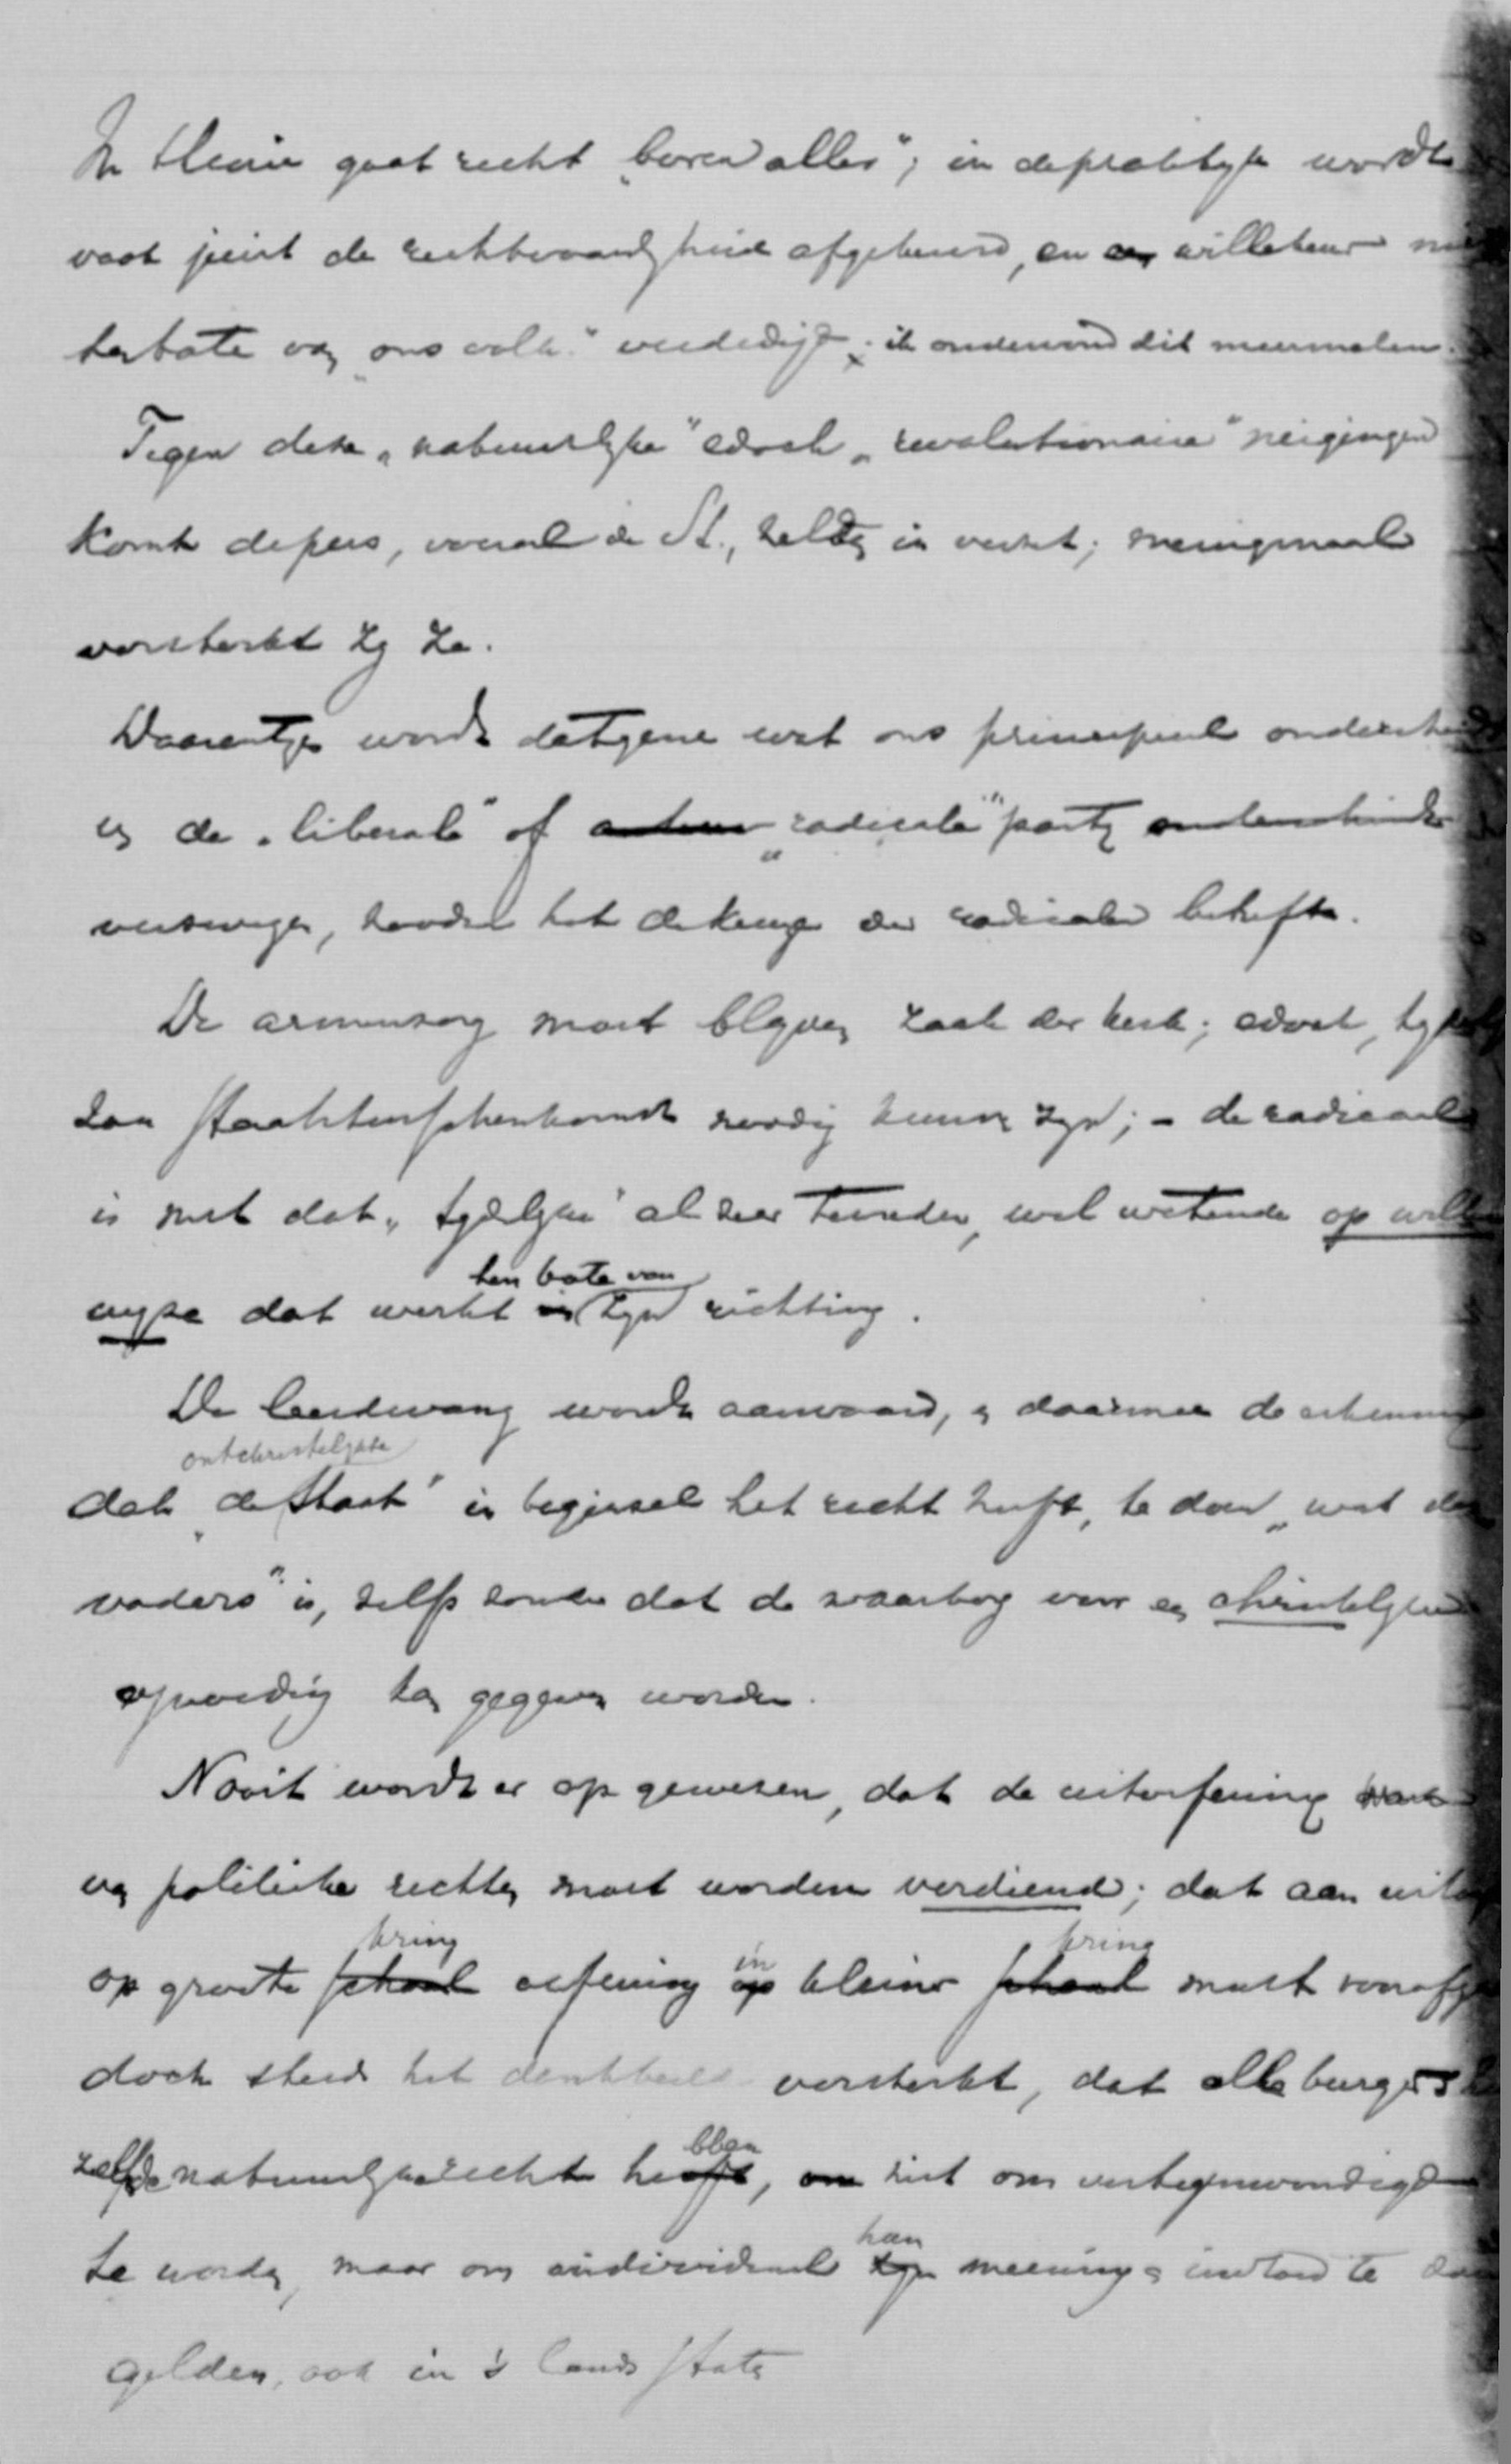 In theorie gaat recht "boven alles"; in de praktyk wordt
vaak juist de rechtvaardigheid afgekeurd, en willekeur
ten bate van "ons volk" verdedigd; ik ondervond dit meermalen.
Tegen deze "natuurlyke" edoch "revolutionaire" neigingen
komt de pers, vooral de St., zelden in verzet; menigmaal
versterkt zy ze.
Daarentegen wordt datgene wat ons principieel onderscheidt
van de "liberale" of "radicale" party
verzwegen, zoodra het de keuze der radicalen betreft.
De armenzorg moet blyven zaak der kerk; edoch,
zou Staatstusschenkomst noodig kunnen zyn; - de radicaal
is met dat "tydelyke" al zeer tevreden, wel wetende op
wyze dat werkt ten bate van zyn richting.
De leerdwang wordt aanvaard, en daarmee de erkenning
ontchristelykte
dat "de Staat" in beginsel het recht heeft, te doen "wat des
vaders" is, zelfs zonder dat de waarborg voor een christelyke
opvoeding kan gegeven worden.
Nooit wordt er op gewezen, dat de uitoefening
van politieke rechten moet worden verdiend; dat aan
kring kring
op groote schaal oefening in kleine schaal moet
doch steeds het denkbeeld versterkt, dat alle burgers
zelfde natuurlyke recht hebben, niet om vertegenwoordigd
te worden, maar om individueel hun meening en invloed te doen
gelden, ook in 's lands Staten